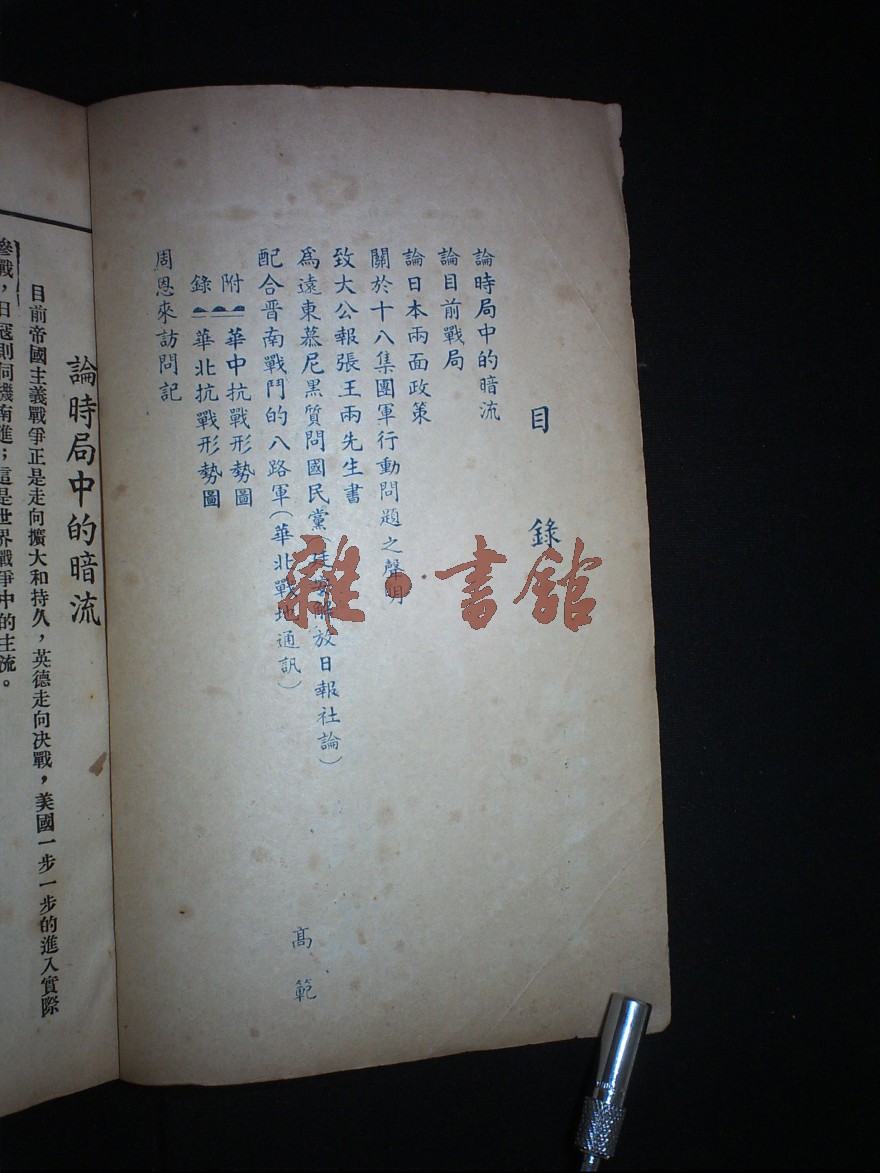 目錄
論時局中的暗流
論目前戰局
論日本兩面政策
關於十八集團軍行動問題之聲明
致大公報張王兩先生書
為遠東慕尼黑質問國民黨（延安解放日報社論）
配合晋南戰鬥的八路軍（華北戰地通訊） 高範
附錄
華中抗戰形勢圖
華北抗戰形勢圖
周恩來訪問記
論時局中的暗流
目前帝國主義戰爭正是走向擴大和持久，英德走向決戰，美國一步一步的進入實際
參戰，日寇則伺機南進；這是世界戰爭中的主流。
雜·書館